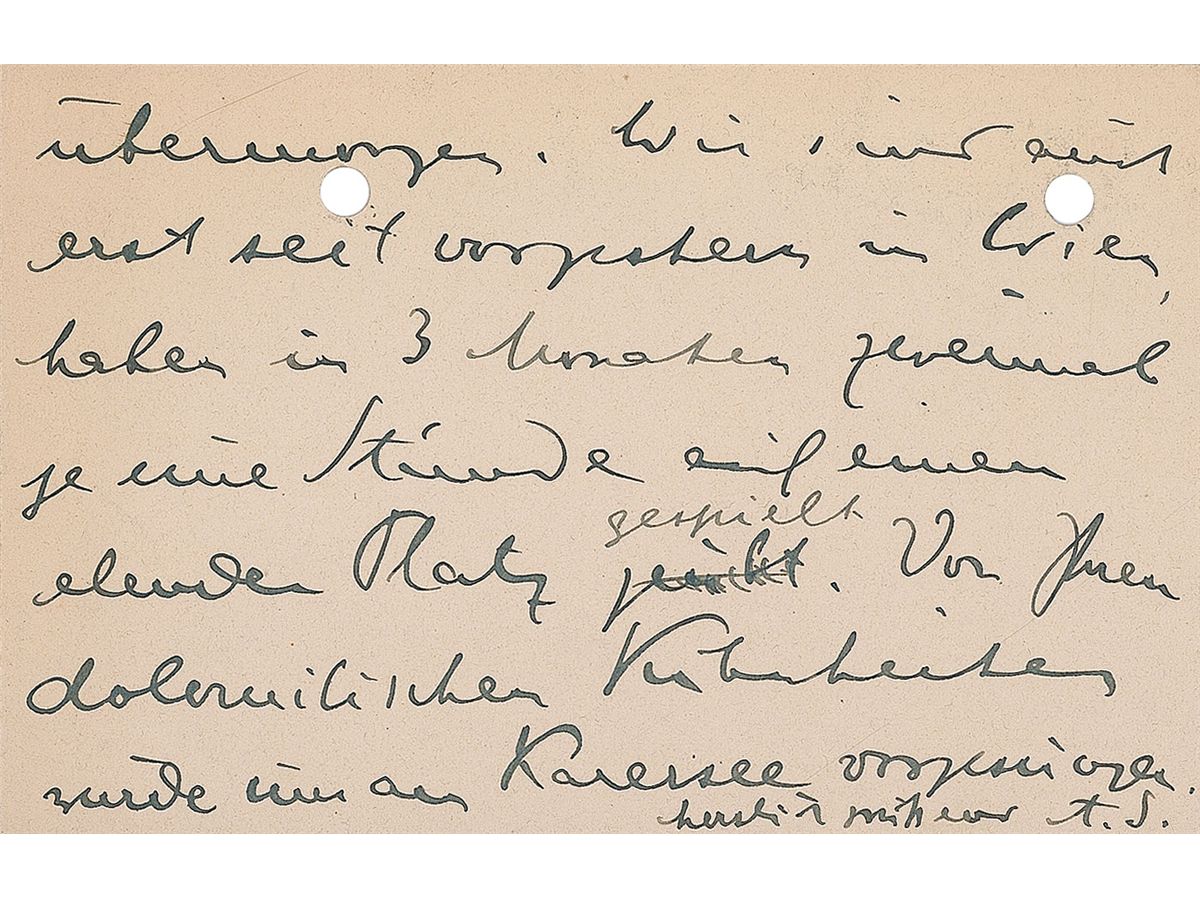 übermorgen. Wir sind auch
erst seit vorgestern in Wien,
haben in 3 Monaten zweimal
je eine Stunde auf einem
elenden Platz gespielt. Von Ihren
dolomitischen Kühnheiten
wurde uns am Karersee vorgesungen.
herzlich grüßend A.S.